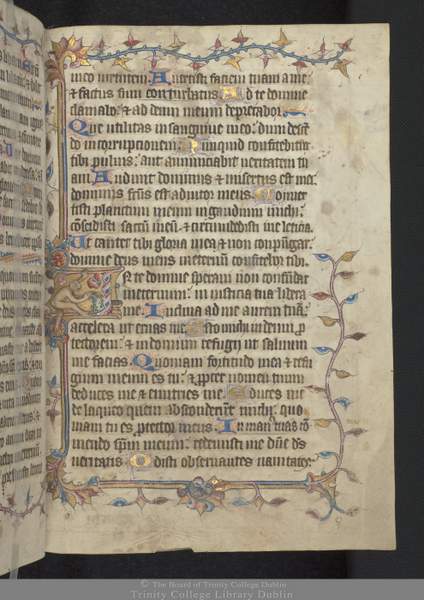 meo virtutem. Auertisti faciem tuam a me:
& factus sum conturbatus. Ad te domine
clamabo: & ad deum meum deprecabor.
Que utilitas in sanguine meo: dum descē
do in corrupcionem. Nunquid confitebitur
tibi puluis: aut annunciabit ueritatem tu
am. Audiuit dominus & misertus est mei:
dominus fcūs est adiutor meus. Conuer
tisti planctum meum in gaudium michi:
cōscidisti saccū meū: & circumdedisti me leticia.
Ut cantet tibi gloria mea & non conpūgar:
domine deus meus ineternū confitebor tibi.
IN te domine speraui non confundar
ineternum: in iusticia tua libera
me. Inclina ad me aurem tuā:
accelera ut eruas me. Esto michi in deum p
tectorem: & in domum refugii ut saluum
me facias. Quoniam fortitudo mea & refu
gium meum es tu: & propter nomen tuum
deduces me & enutries me. Educes me
de laqueo quem absconderūt michi: quo
niam tu es protector meus. In manus tuas cō
mendo spm meum: redemisti me dnē ds
ueritatis. Odisti obseruantes uanitates:
© The Board of Trinity College Dublin
Trinity College Library Dublin